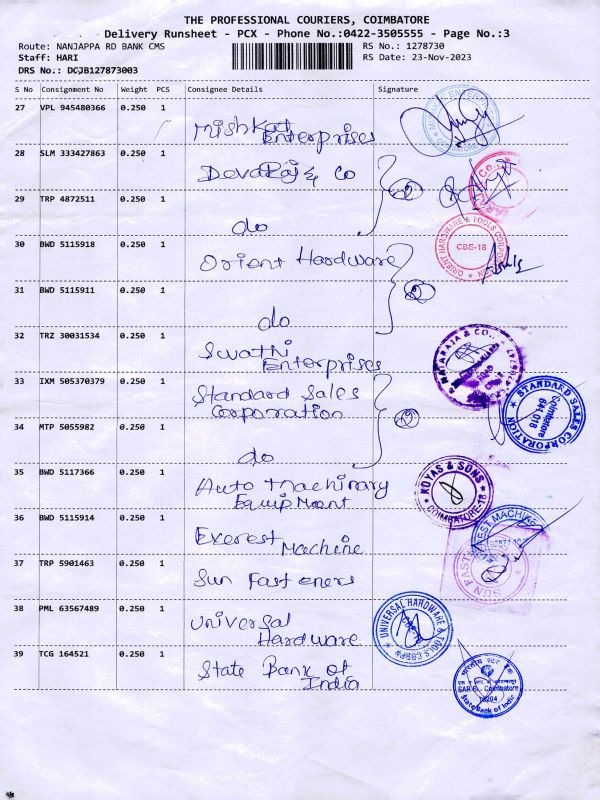 THE PROFESSIONAL COURIERS, COIMBATORE
Delivery Runsheet - PCX - Phone No.:0422-3505555 - Page No.:3
Route: NANJAPPA RD BANK CMS
RS No.: 1278730
Staff: HARI
RS Date: 23-Nov-2023
DRS No.: DCJB127873003
S No Consignment No Weight PCS Consignee Details Signature
27 VPL 945480366 0.250 1
Mishkat
Enterprises
28 SLM 333427863 0.250 1
Devaraj & Co
29 TRP 4872511 0.250 1
do
30 BWD 5115918 0.250 1
Orient Hardware
ORIENT HARDWARE & TOOLS CORPORATION
CBE-18
31 BWD 5115911 0.250 1
do
32 TRZ 30031534 0.250 1
Swathi
Enterprises
33 IXM 505370379 0.250 1
Standard Sales
Corporation
STANDARD SALES CORPORATION
Coimbatore
641 018
34 MTP 5055982 0.250 1
do
35 BWD 5117366 0.250 1
Auto Machinary
Equipment
KOYAS & SONS
COIMBATORE-18
36 BWD 5115914 0.250 1
Everest
Machine
37 TRP 5901463 0.250 1
Sun Fasteners
SUN FAST
38 PML 63567489 0.250 1
Universal
Hardware
UNIVERSAL HARDWARE & TOOLS CORPN
39 TCG 164521 0.250 1
State Bank of
India
भारतीय स्टेट बैंक
Coimbatore
State Bank of India